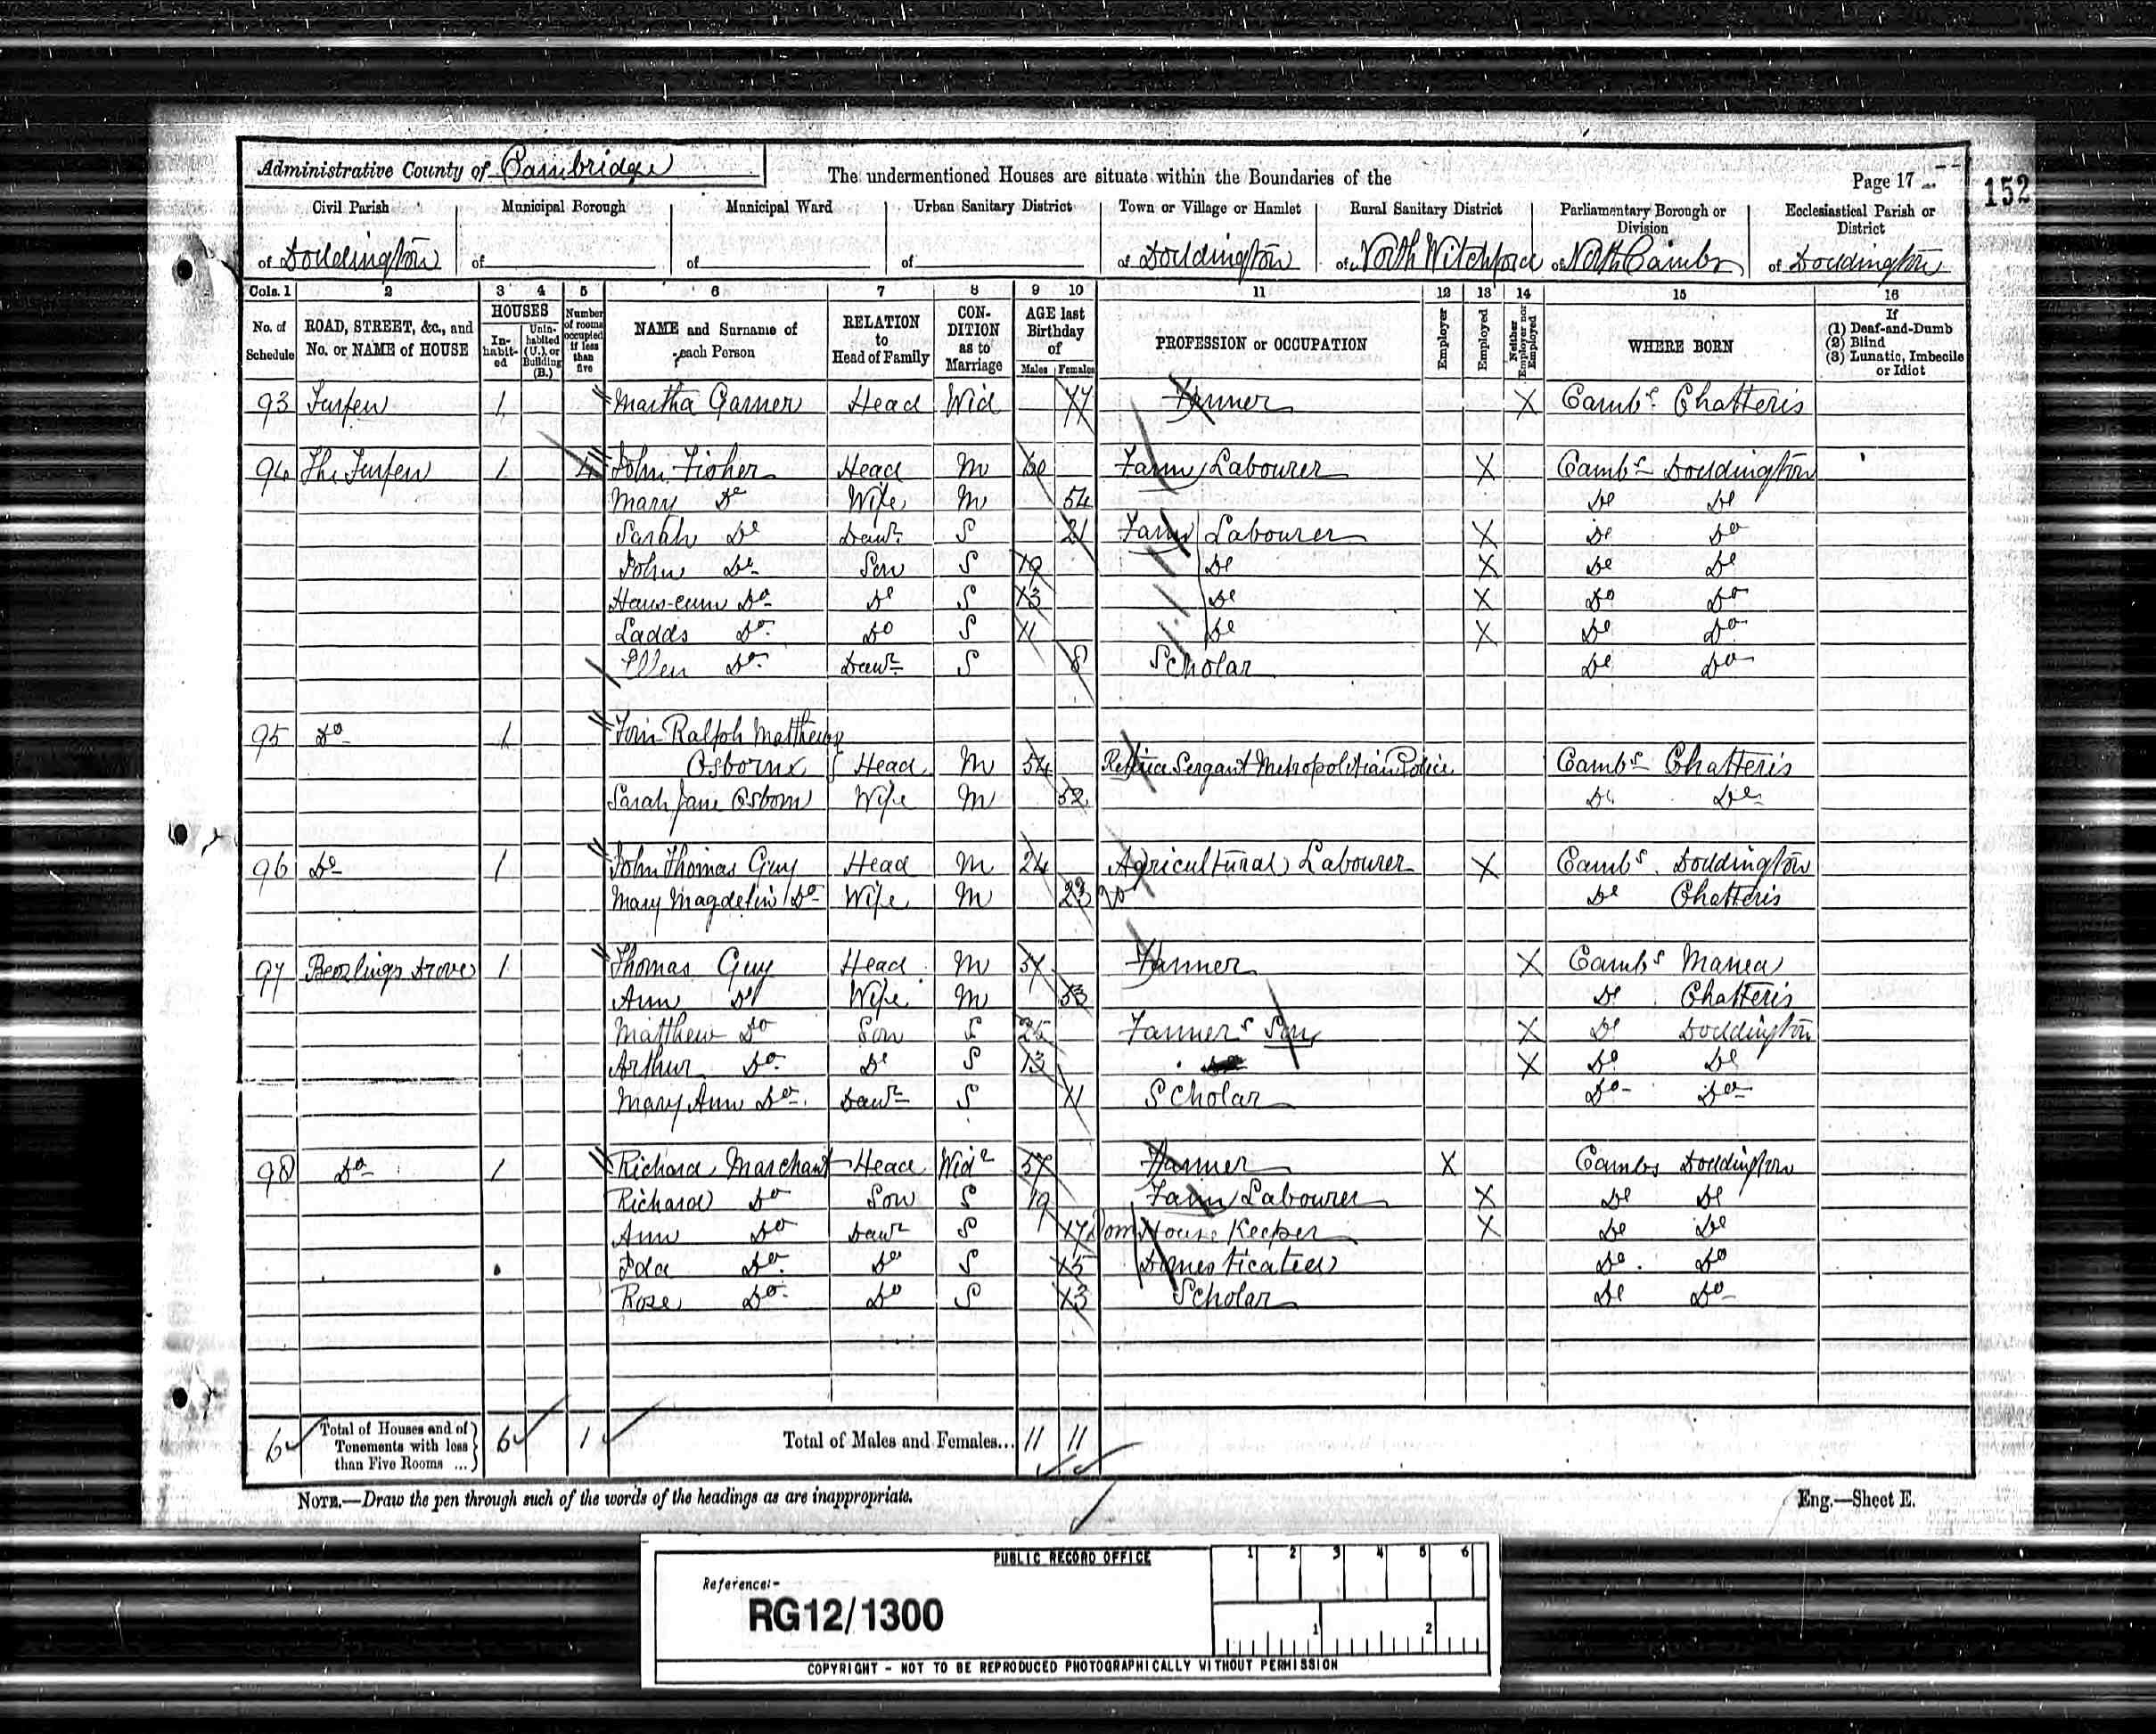 Administrative County of Cambridge
The undermentioned Houses are situate within the Boundaries of the
Page 17
152
Civil Parish Municipal Borough Municipal Ward Urban Sanitary District Town or Village or Hamlet Rural Sanitary District Parliamentary Borough or Division Ecclesiastical Parish or District
of Doddington of of of of Doddington of North Witchford of North Cambs of Doddington
Cols. 1 2 3 4 5 6 7 8 9 10 11 12 13 14 15 16
No. of Schedule ROAD, STREET, &c., and No. or NAME of HOUSE HOUSES In-habit-ed Unin-habited (U.), or Building (B.) Number of rooms occupied if less than five NAME and Surname of each Person RELATION to Head of Family CON-DITION as to Marriage AGE last Birthday of Males Females PROFESSION or OCCUPATION Employer Employed Neither Employer nor Employed WHERE BORN If (1) Deaf-and-Dumb (2) Blind (3) Lunatic, Imbecile or Idiot
93 Turfen 1 Martha Garner Head Wid 77 Farmer X Cambs Chatteris
94 The Turfen 1 4 John Fisher Head M 60 Farm Labourer X Cambs Doddington
Mary Do Wife M 54 Do Do
Sarah Do Dawr S 21 Farm Labourer X Do Do
John Do Son S 19 Do X Do Do
Do Do S 13 Do X Do Do
Ladds Do Do S 11 Do X Do Do
Ellen Do Dawr S 8 Scholar Do Do
95 Do 1 Ralph Matthews
Osborne Head M 54 Sergant Metropolitian Police Cambs Chatteris
Sarah Jane Osborn Wife M 52 Do Do
96 Do 1 John Thomas Guy Head M 24 Agricultural Labourer X Cambs Doddington
Mary Magdelin Do Wife M 23 Do Chatteris
97 Drove 1 Thomas Guy Head M 57 Farmer X Cambs Manea
Ann Do Wife M 53 Do Chatteris
Matthew Do Son S 25 Farmers Son X Do Doddington
Arthur Do Do S 13 X Do Do
Mary Ann Do Dawr S 11 Scholar Do Do
98 Do 1 Richard Marchant Head Widr 57 Farmer X Cambs Doddington
Richard Do Son S 19 Farm Labourer X Do Do
Ann Do Dawr S 17 Dom House Keeper X Do Do
Ida Do Do S 15 Do Do
Rose Do Do S 13 Scholar Do Do
6 Total of Houses and of Tenements with less than Five Rooms ... 6 1 Total of Males and Females... 11 11
NOTE.—Draw the pen through such of the words of the headings as are inappropriate.
Eng.—Sheet E.
PUBLIC RECORD OFFICE
1 2 3 4 5 6
Reference:-
RG12/1300
1 2
COPYRIGHT - NOT TO BE REPRODUCED PHOTOGRAPHICALLY WITHOUT PERMISSION